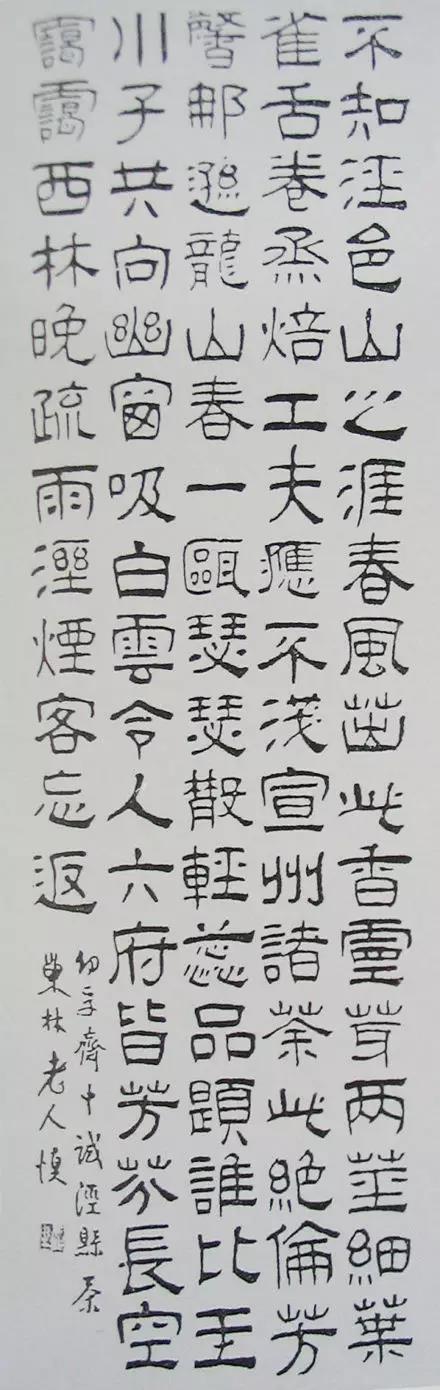 不知涇邑山之涯春風茁此香靈芽两莖細葉
雀舌卷烝焙工夫應不淺宣州諸茶此絶倫芳
馨那遜龍山春一甌瑟瑟散輕蕊品題誰比玉
川子共向幽窗吸白雲令人六府皆芳芬長空
靄靄西林晚疏雨溼煙客忘返
幼孚齋中試涇縣茶
巢林老人慎